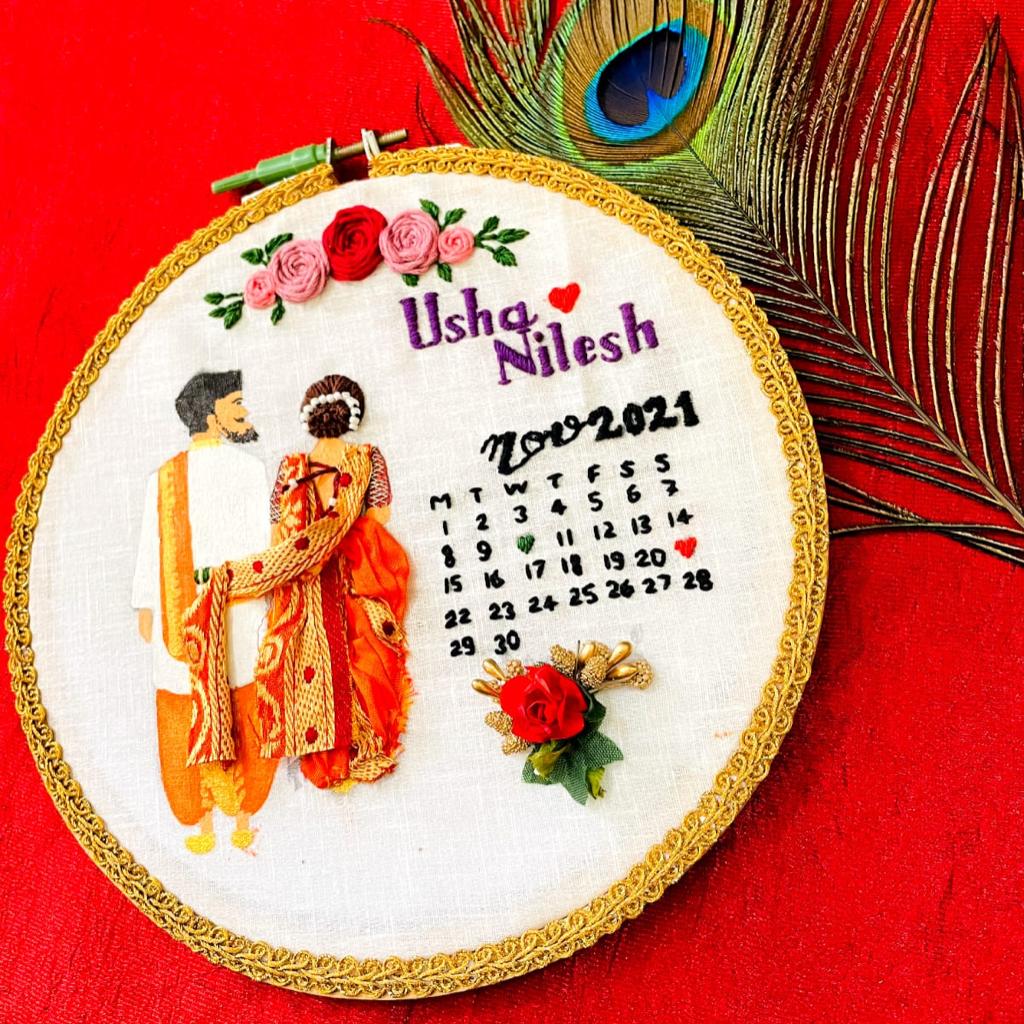 Usha
Nilesh
Nov 2021
M T W T F S S
1 2 3 4 5 6 7
8 9 11 12 13 14
15 16 17 18 19 20
22 23 24 25 26 27 28
29 30